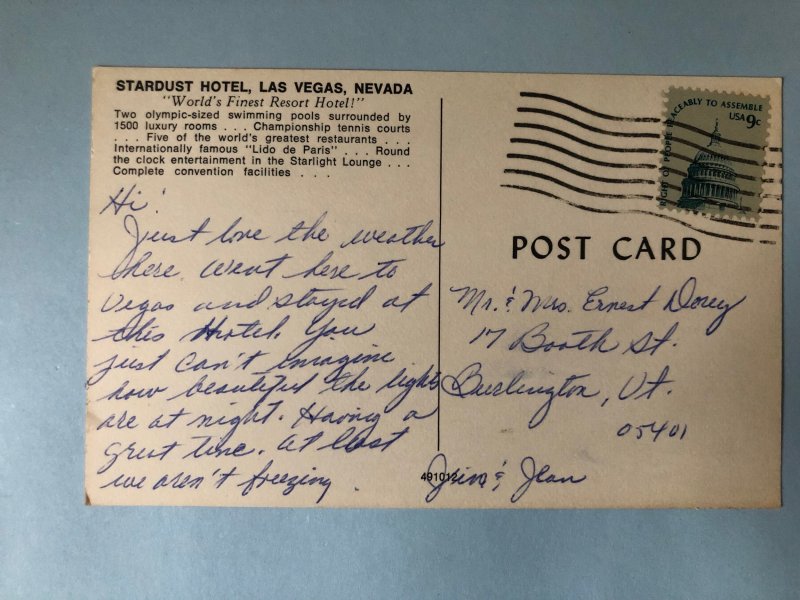 STARDUST HOTEL, LAS VEGAS, NEVADA
"World's Finest Resort Hotel!"
Two olympic-sized swimming pools surrounded by
1500 luxury rooms . . . Championship tennis courts
. . . Five of the world's greatest restaurants . . .
Internationally famous "Lido de Paris" . . . Round
the clock entertainment in the Starlight Lounge . . .
Complete convention facilities . . .
Hi!
Just love the weather
here. Went here to
Vegas and stayed at
this Hotel. You
just can't imagine
how beautiful the lights
are at night. Having a
great time. At least
we aren't freezing.
Jim & Jean
RIGHT OF PEOPLE PEACEABLY TO ASSEMBLE
USA 9c
POST CARD
Mr. & Mrs. Ernest Dorey
17 Booth St.
Burlington, Vt.
05401